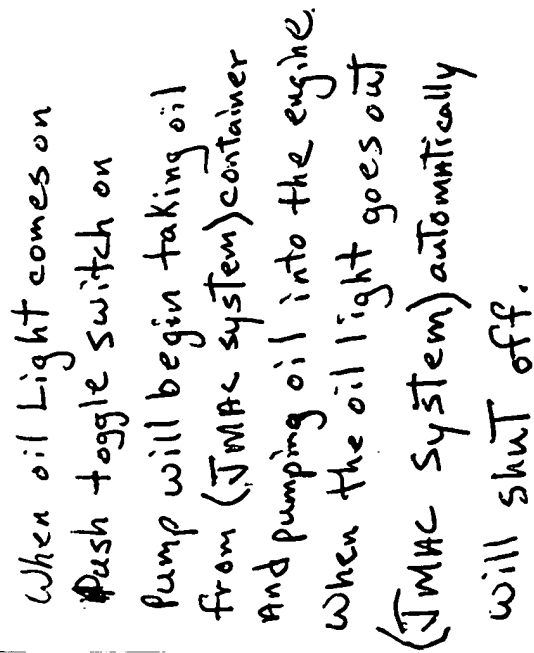 When oil Light comes on
Push toggle switch on
Pump will begin taking oil
from (JMAC system) container
And pumping oil into the engine.
When the oil light goes out
(JMAC System) automatically
will shut off.